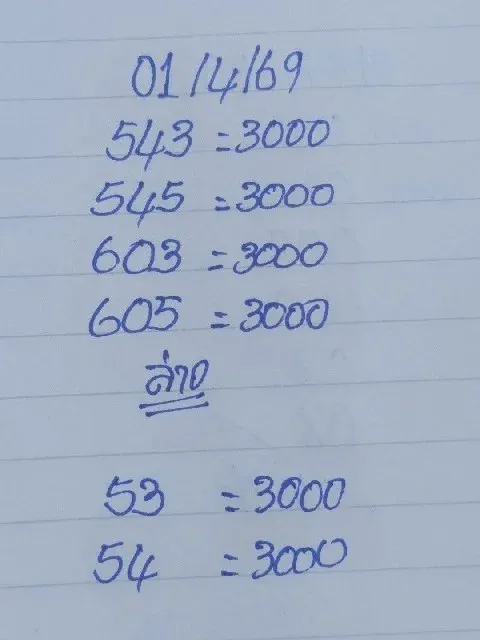 01/4/69
543 = 3000
545 = 3000
603 = 3000
605 = 3000
ล่าง
53 = 3000
54 = 3000